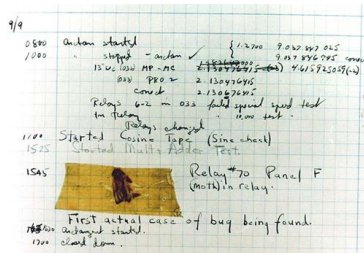 9/9
0800 Antan started
1000 " stopped - antan ✓ { 1.2700 9.037 847 025
9.037 846 995 conect
13"uc (032) MP - MC 2.130476415 (-3) 4.615925059(-2)
(033) PRO 2 2.130476415
conect 2.130676415
Relays 6-2 in 033 failed special speed test
In Relay " 11,000 test.
Relays changed
1100 Started Cosine Tape (Sine check)
1525 Started Multi Adder Test.
1545 Relay #70 Panel F
(moth) in relay.
First actual case of bug being found.
1630 antangent started.
1700 closed down.